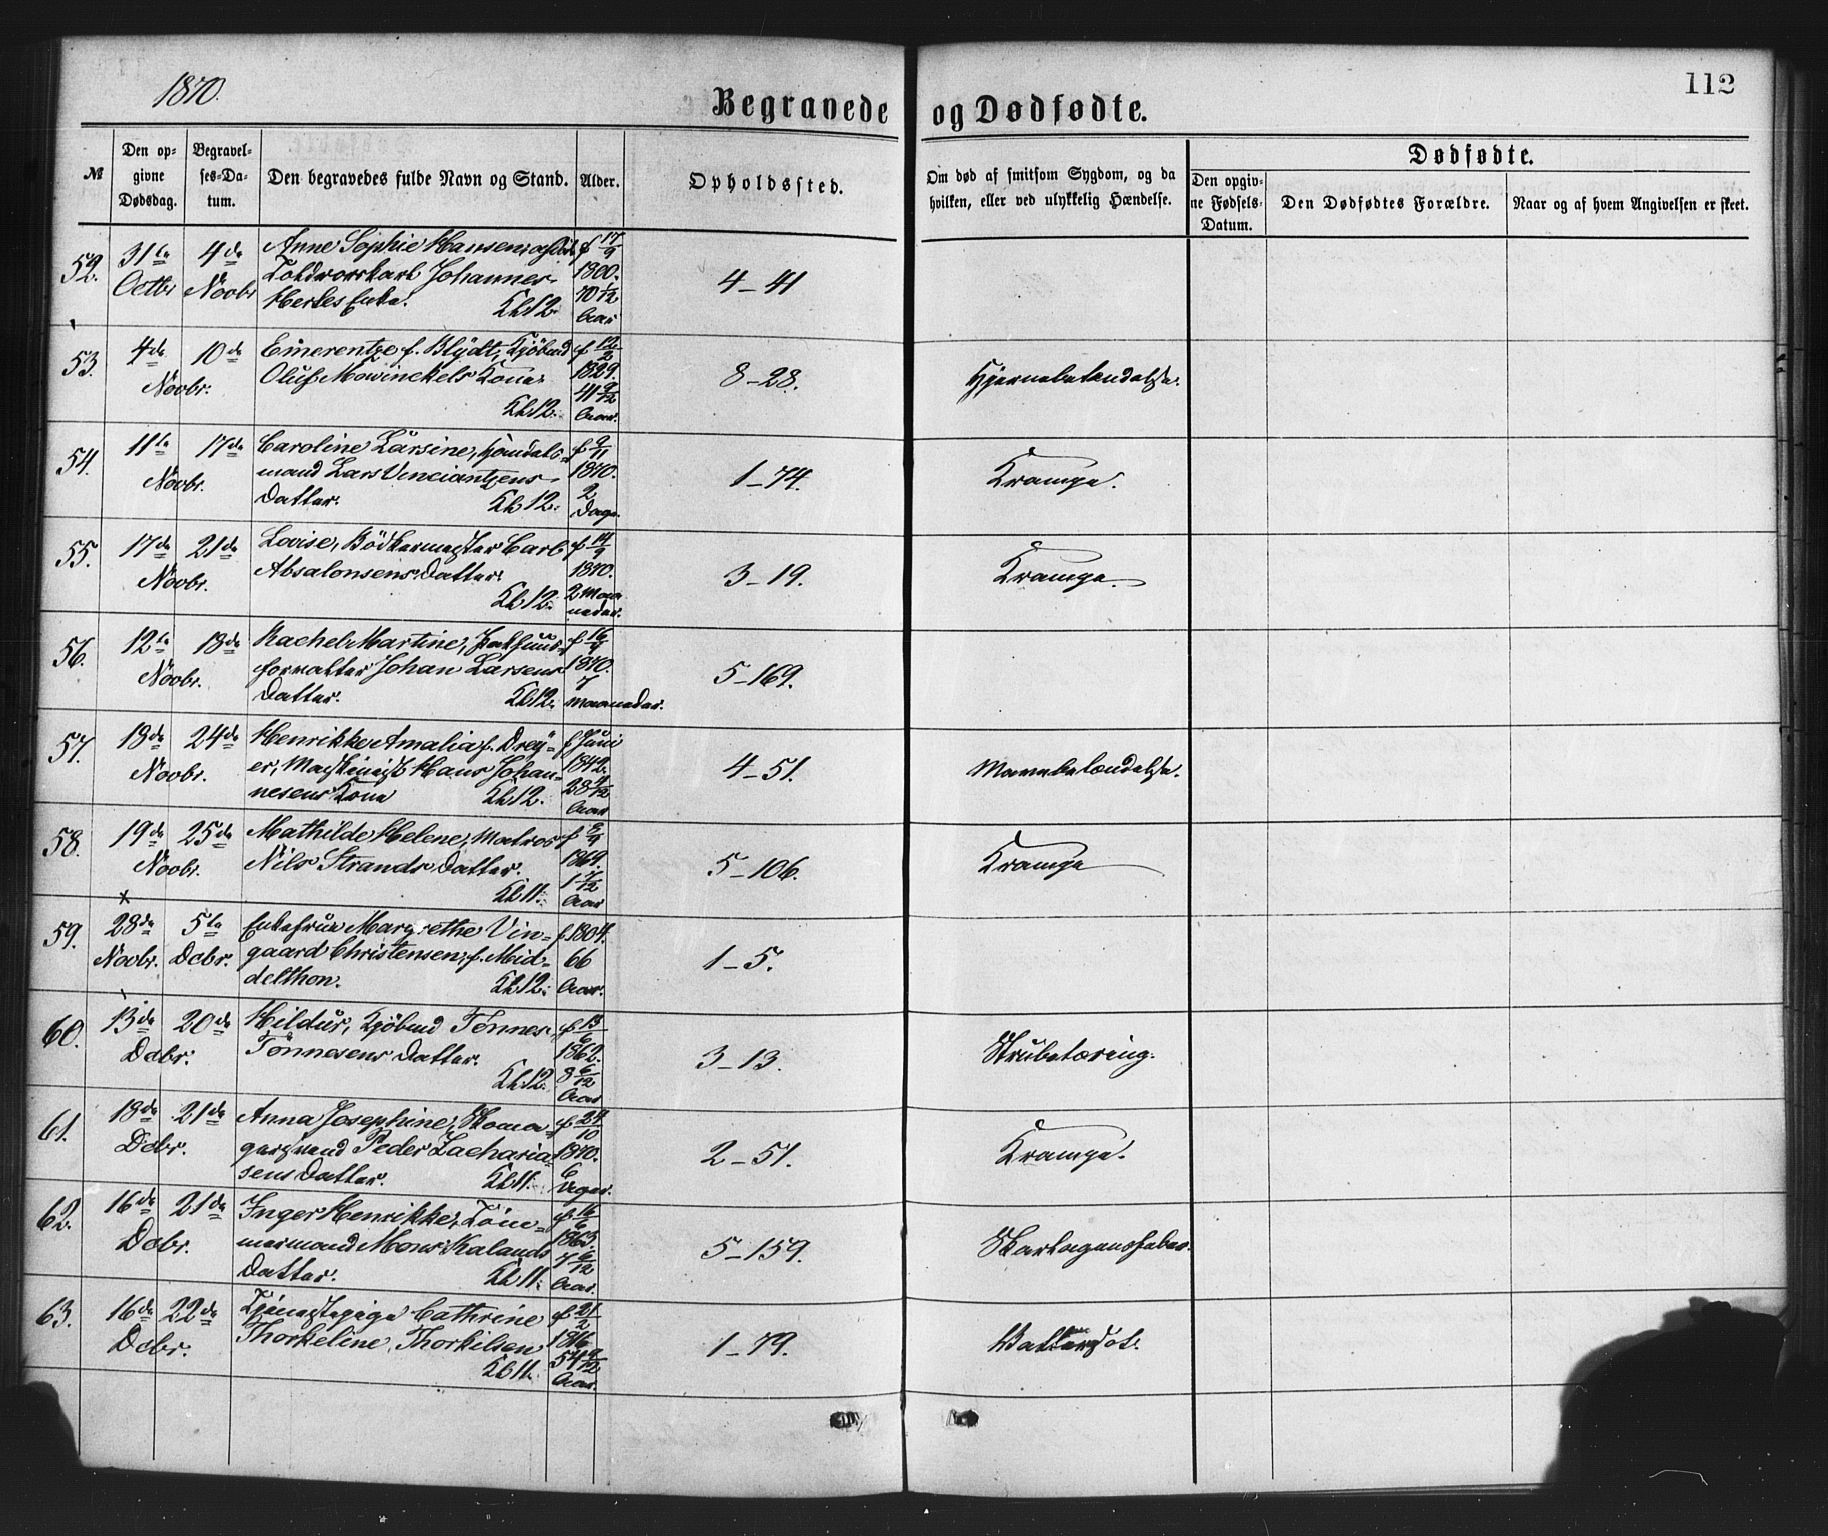 1870.
Begravede og Dødfødte.
112
№
Den opgivne Dødsdag.
Begravelses-Datum.
Den begravedes fulde Navn og Stand.
Alder.
Opholdssted.
Om død af smitsom Sygdom, og da hvilken, eller ved ulykkelig Hændelse.
Dødfødte.
Den opgivne Fødsels-Datum.
Den Dødfødtes Forældre.
Naar og af hvem Angivelsen er skeet.
52. 31te Octbr 4de Novbr
Anne Sophie Hansen,
Johannes
Herkes Enke. Kl 12.
f 17/9 1800. 70 1/12 Aar
4–41
53. 4de 10de Novbr.
Emerentze f. Blydt, Kjøbmd
Oluf Mowinckels Kone.
Kl 12.
f 12/2 1829. 41 9/12 Aar.
8–28.
Hjernebetændelse.
54. 11te 17de Novbr.
Caroline Larsine, Handels-
mand Lars Vinciantzens
Datter. Kl 12.
f 9/11 1870. 2 Dage.
1–74.
Krampe.
55. 17de 21de Novbr.
Lovise, Bødkermester Carl
Absalonsens Datter.
Kl 12.
f 14/9 1870. 2 Maa-
neder.
3–19.
Krampe.
56. 12te 18de Novbr.
Rachel Martine,
forvalter Johan Larsens
Datter. Kl 12.
f 16/4 1870. 7 Maaneder.
5–169.
57. 18de 24de Novbr.
Henrikke Amalia f. Drey-
er, Maskinist Hans Johan-
nesens Kone Kl 12.
f Juni 1842. 28 4/12 Aar
4–51.
Mavebetændelse.
58. 19de 25de Novbr.
Mathilde Helene, Matros
Nils Strands Datter.
Kl 11.
1869. 1 Aar
5–106.
Krampe
59. 28de Novbr. 5te Dcbr.
Enkefrue Margrethe Vin-
gaard Christensen, f. Mid-
delthon. Kl 12.
f 1804. 66 Aar.
1–5.
60. 13de 20de Dcbr.
Hildur, Kjøbmd Tønnes
Tønnesens Datter.
Kl 12.
f 13/6 1862. 8 6/12 Aar
3–13.
Strubetæring.
61. 18de 21de Dcbr.
Anna Josephine, Skoma-
gersvend Peder Zacharia-
sens Datter. Kl 11.
f 24/10 1870. 6 Uger.
2–51.
Krampe.
62. 16de 21de Dcbr.
Inger Henrikke, Tøm-
mermand Mons Kalands
Datter. Kl 11.
f 16/6 1863. 7 6/12 Aar.
5–159.
Skarlagensfeber.
63. 16de 22de Dcbr.
Tjenestepige Cathrine
Thorkeline Thorkilsen
Kl 11.
f 21/2 1816 54 9/12 Aar.
1–79.
Vattersot.